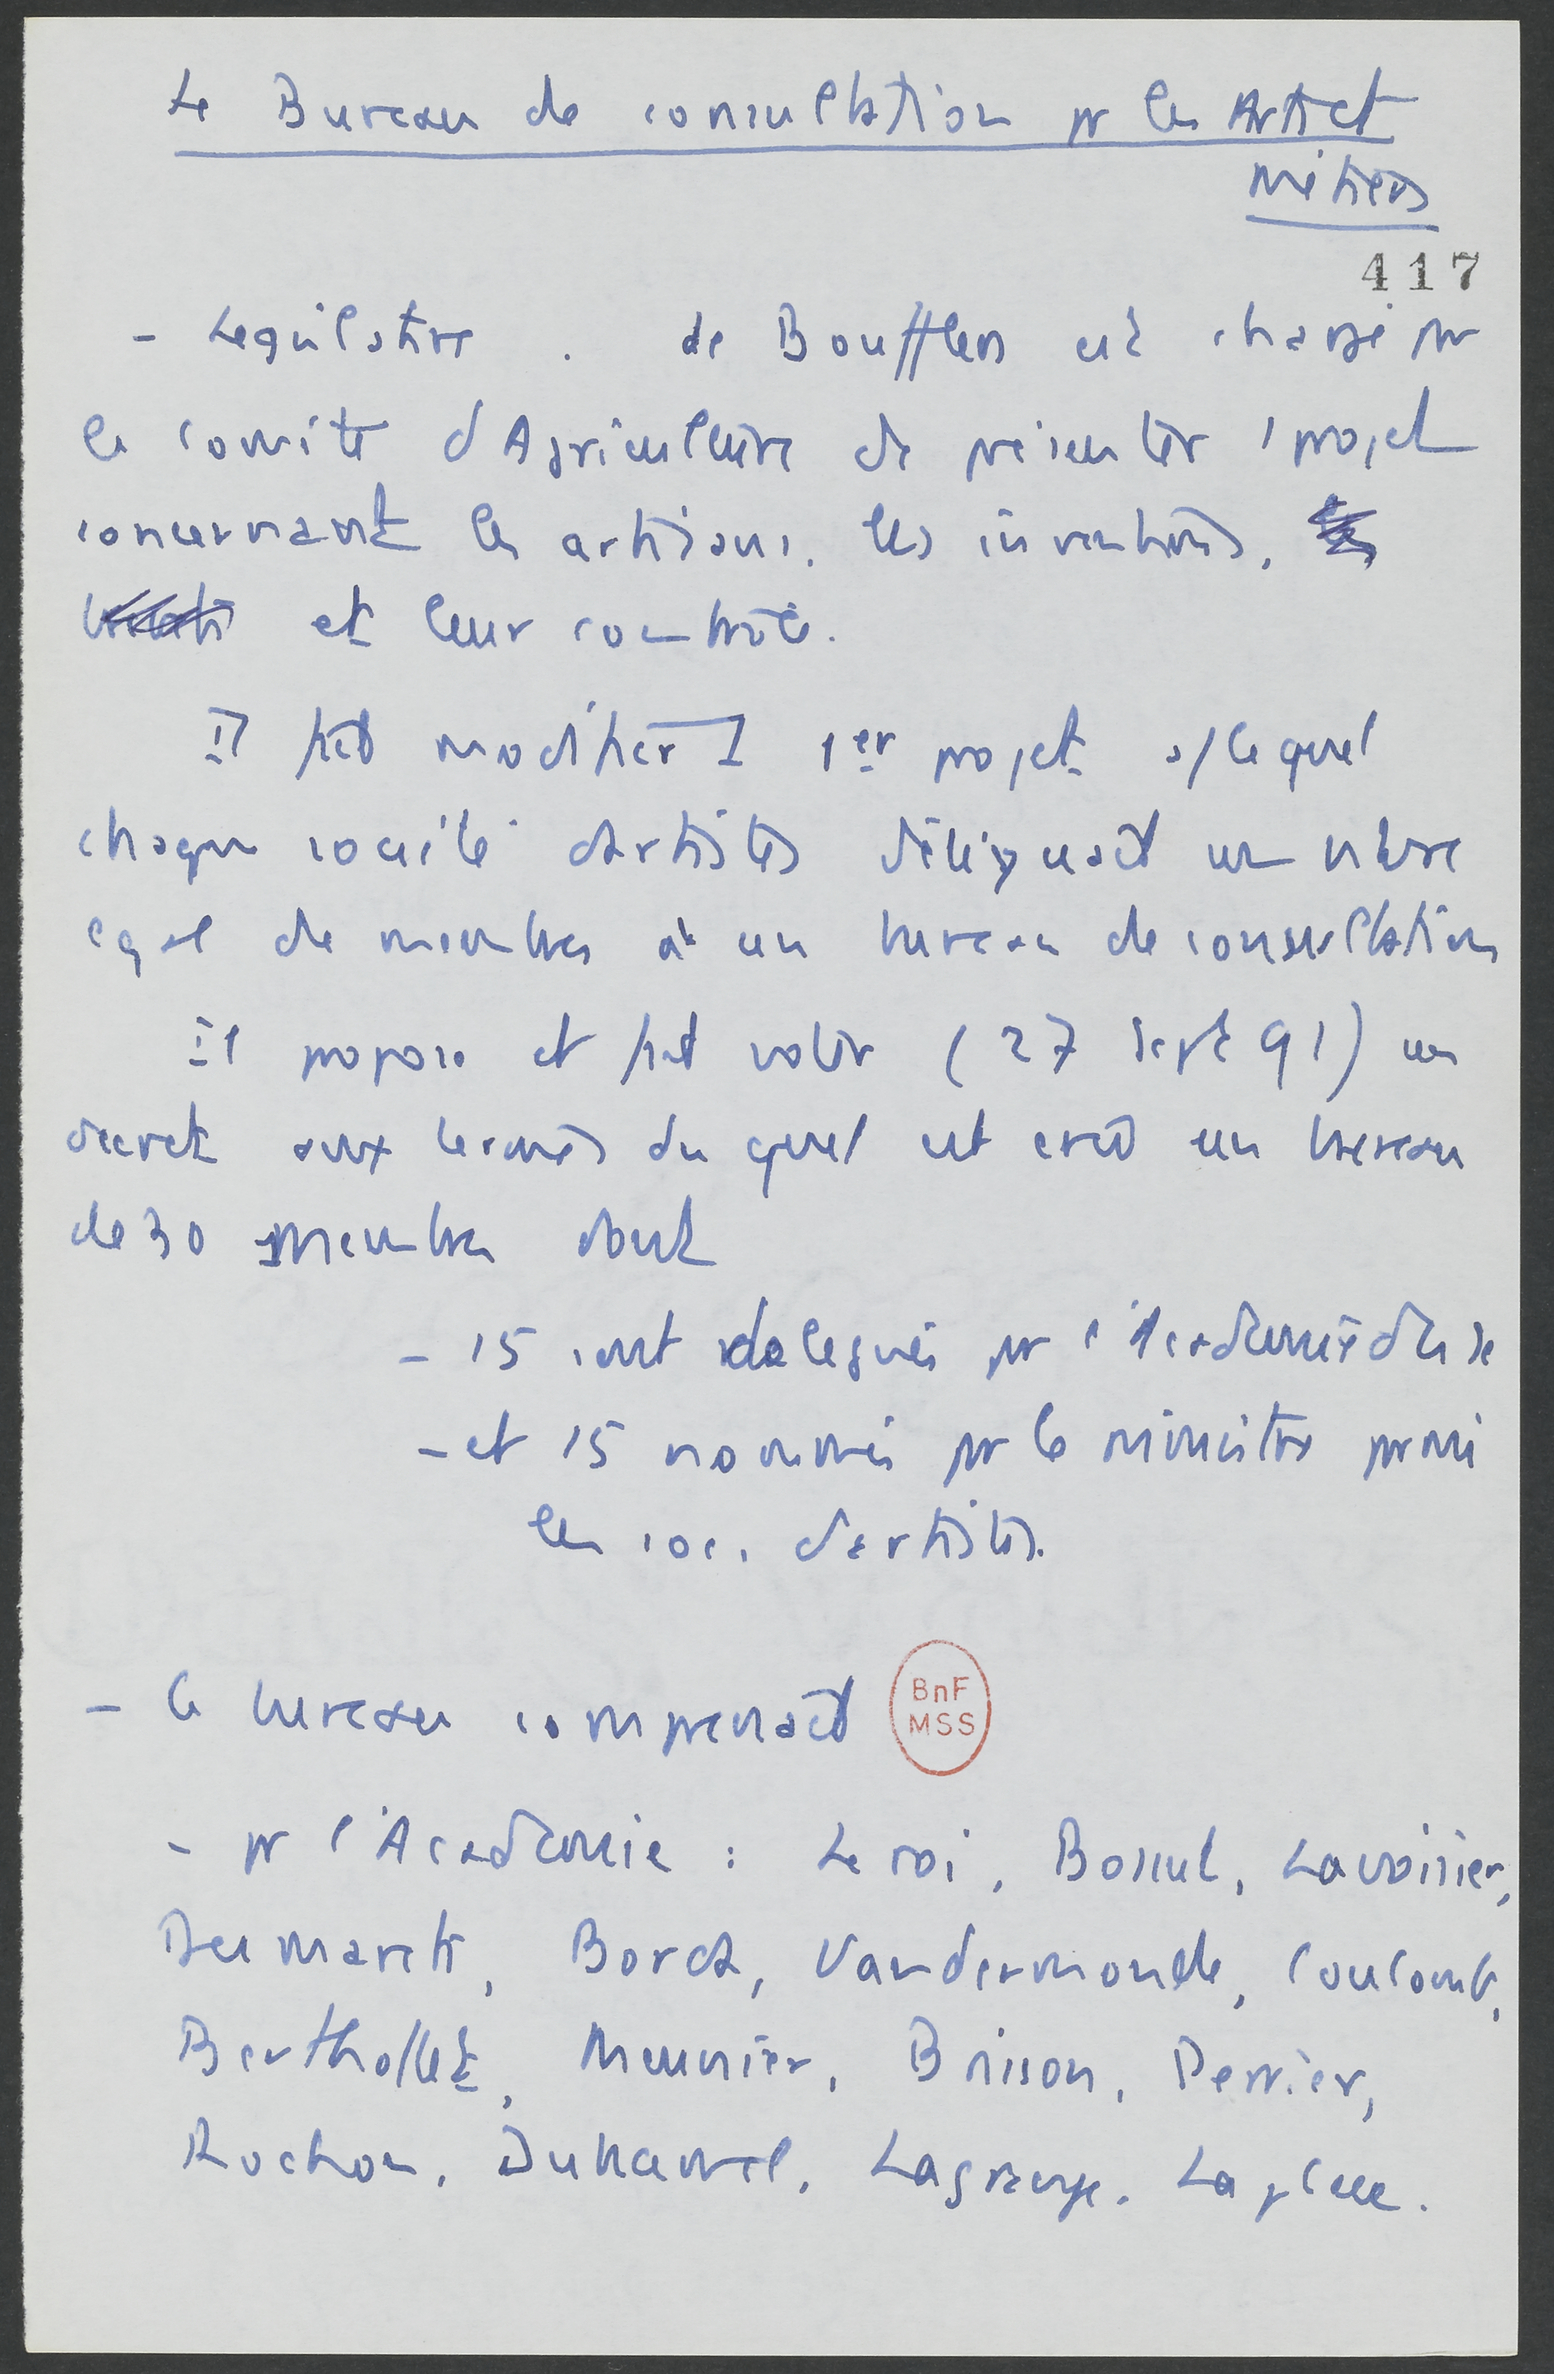 Le Bureau de consultation pr les Arts et
métiers
417
- Legislative . de Boufflers est chargé par
le comité d'Agriculture de présenter 1 projet
concernant les artisans, les inventions,
et leur contrôle.
Il fait modifier 1 1er projet s/ lequel
chaque société d'artistes déléguait un nbre
égal de membres à un bureau de consultation
Il propose et fait voter (27 Sept 91) un
décret aux termes du quel est créé un bureau
de 30 membres dont
- 15 sont délégués par l'Académie des Sc
- et 15 nommés par le ministre parmi
les soc. d'artistes.
- le bureau comprenait
BnF
MSS
- pr l'Académie : Le roi, Bossut, Lavoisier,
Desmarets, Borda, Vandermonde, Coulomb,
Berthollet, Meunier, Brisson, Perrier,
Rochon, Duhamel, Lagrange, Laplace.